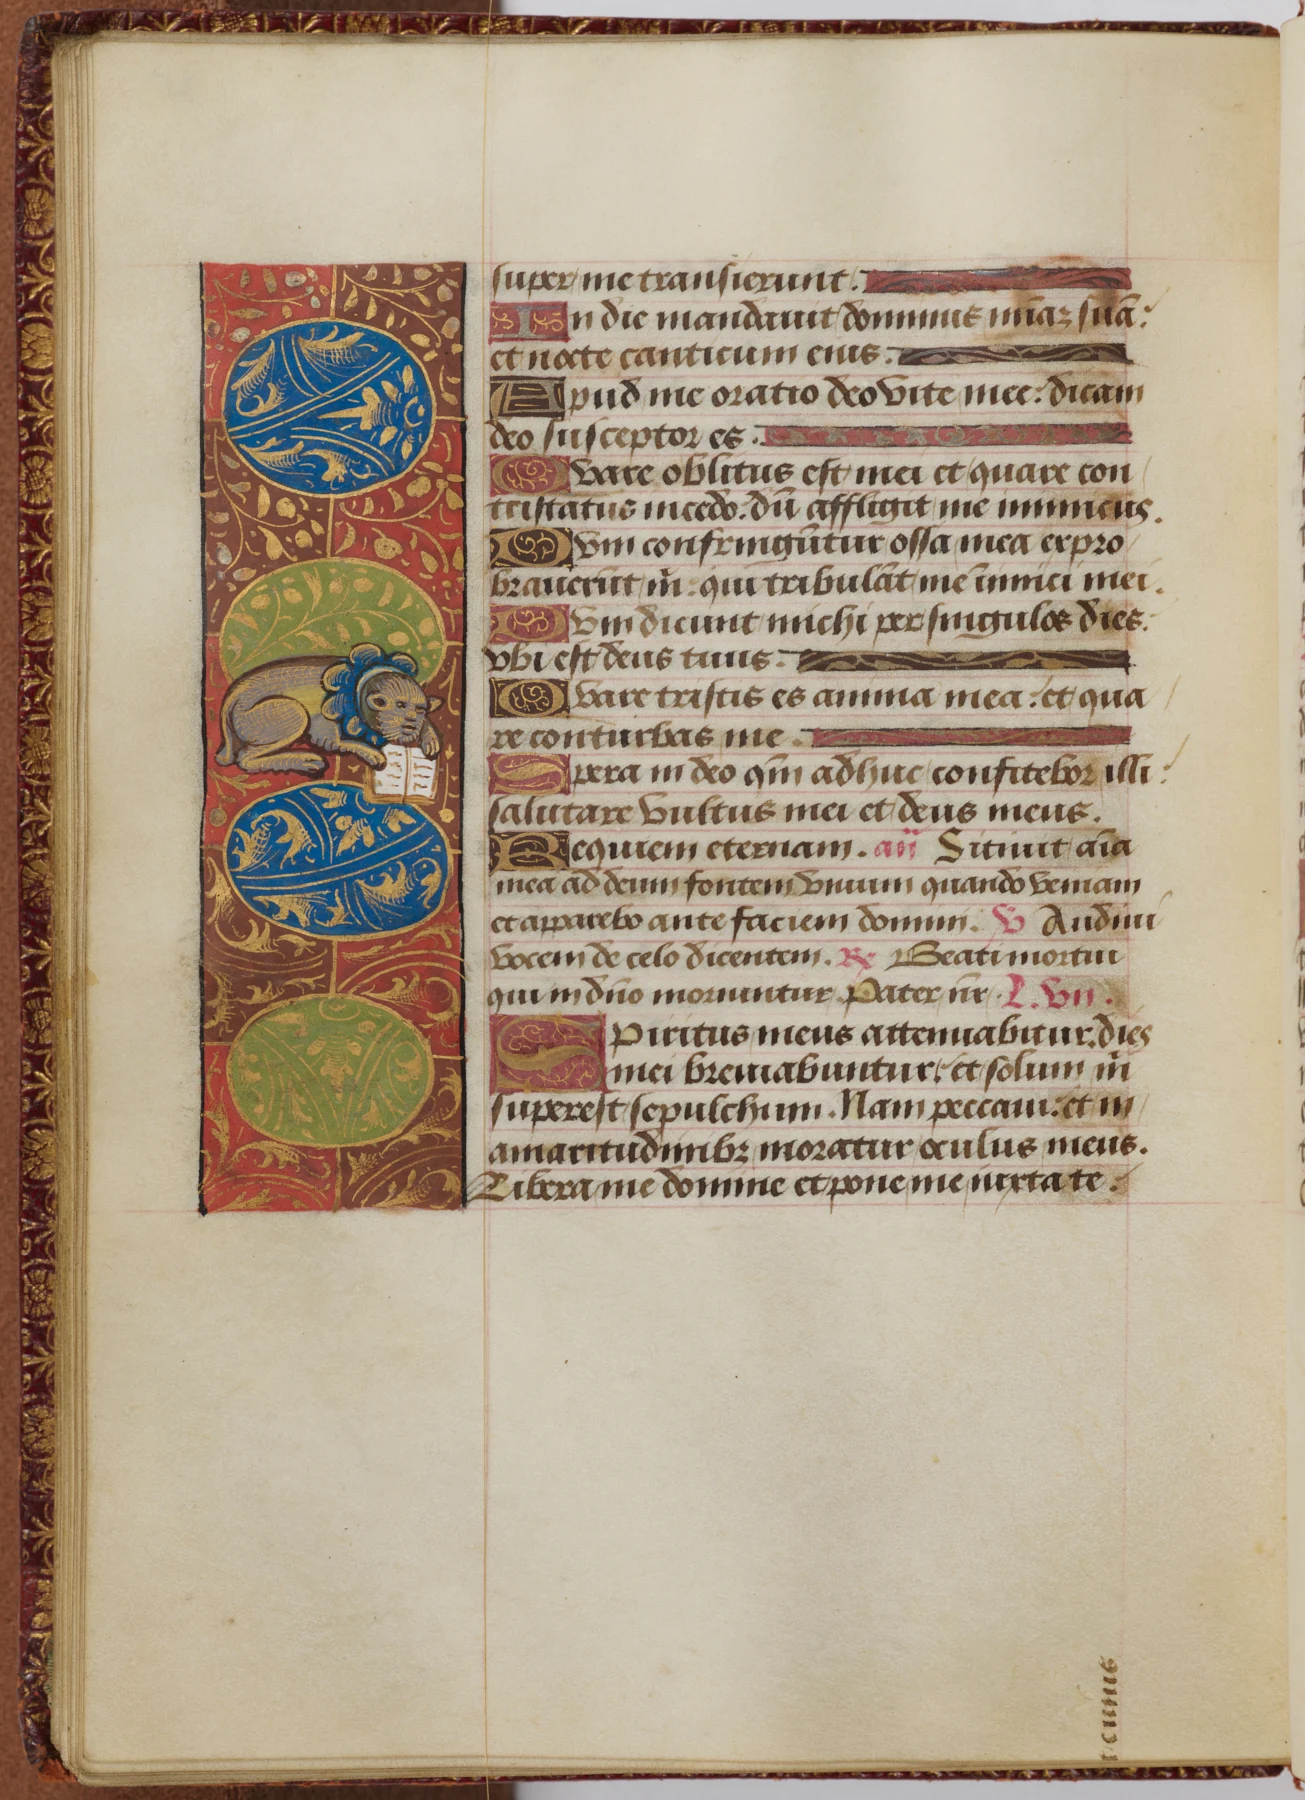 super me transierunt.
In die mandauit dominus miãz suã:
et nocte canticum eius.
Apud me oratio deo vite mee: dicam
deo susceptor es.
Quare oblitus est mei et quare con
tristatus incedo: dũ affligit me inimicus.
Dum confringũtur ossa mea expro
brauerũt m̃: qui tribulãt me inimici mei.
Dum dicunt michi per singulos dies:
vbi est deus tuus.
Quare tristis es anima mea: et qua
re conturbas me.
Spera in deo qm̃ adhuc confitebor illi:
salutare vultus mei et deus meus.
Requiem eternam. añ Sitiuit aĩa
mea ad deum fontem viuum quando veniam
et apparebo ante faciem domini. V Audiui
vocem de celo dicentem. R Beati mortui
qui in dño moriuntur Pater nr̃. L. vii.
Spiritus meus attenuabitur: dies
mei breuiabuntur: et solum m̃
superest sepulchrum. Nam peccaui: et in
amaritudinibz moratur oculus meus.
Libera me domine et pone me iuxta te: